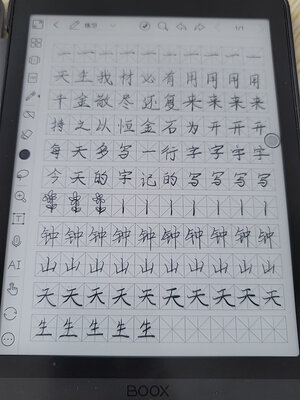 练字 1/1
一 一 一 一 一 一 一 一 一 一
天 生 我 材 必 有 用 用 用 用
千 金 散 尽 还 复 来 来 来 来
持 之 以 恒 金 石 为 开 开 开
每 天 多 写 一 行 字 字 字 字
今 天 的 字 记 的 写 写 写 写
钟 钟 钟 钟 钟 钟 钟 钟 钟 钟
山 山 山 山 山 山 山 山 山 山
天 天 天 天 天 天 天 天 天 天
生 生 生 生 生
AI
BOOX